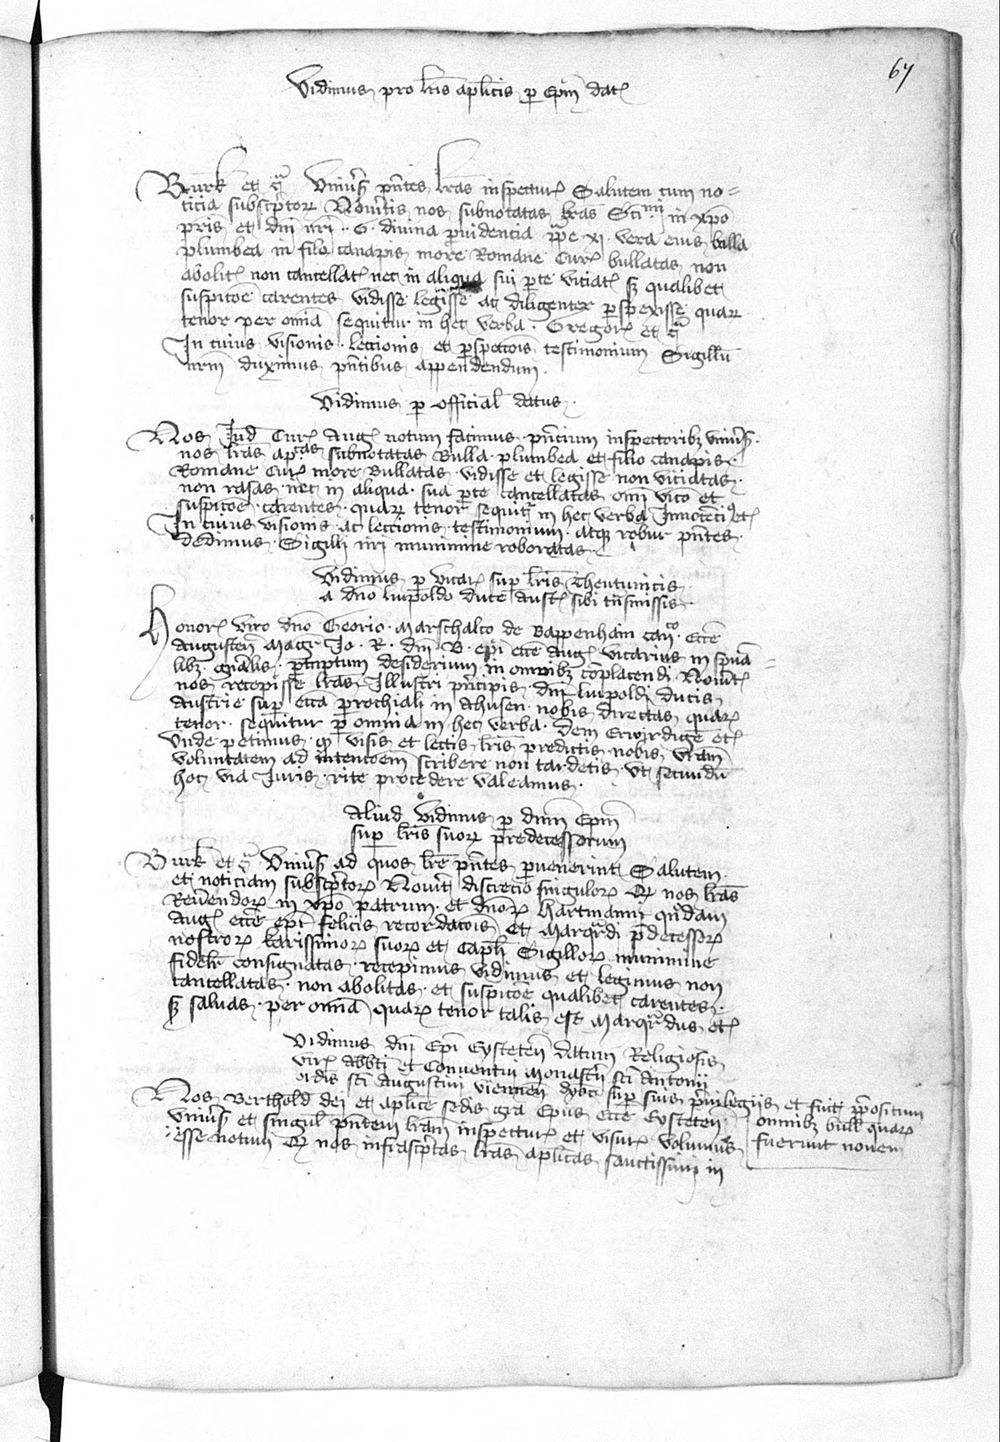 67
Vidimus pro lris aplicis p Epm dat
Burk et c Univs pntes lras inspectur Salutem cum no=
ticia subscptor Novitis nos subnotatas lras Scmi in xpo
pris et dni nri .. G. divina pvidencia ppe xi. vera eius bulla
plumbea in filo canapis more Romane Cur bullatas non
abolit non cancellat nec in aliqua sui pte viciat sz qualibet
suspicoe carentes vidisse legisse ac diligenter pspexisse quar
tenor per omia sequitur in hec verba. Gregor et c
In cuius visionis. leccionis et pspeccois testimonium Sigillu
nrm duximus pntibus appendendum.
Vidimus p official datus.
Nos Jud Cur Aug notum facimus. pncium inspectoribz univs.
nos lras aplcas subnotatas Bulla. plumbea et filo canapis.
Romane Cur more Bullatas. vidisse et legisse non viciatas.
non rasas nec in aliqua. sua pte cancellatas omi vico et
suspicoe. carentes. quar tenor sequit in hec verba Innocenci etc
In cuius visionis ac leccionis testimonium. atqz robur pntes.
dedimus. Sigilli nri munimine roboratas.
Vidimus p vicar sup lris theutunicis
a dno lupoldo duce Aust sibi tnsmissis.
Honor viro dno Georio. Marschalco de Bappenhain canco. Ecce
Augusten Magr Jo. R. dni B. epi ecce Aug vicarius in spua=
libz. gnalis. pmptum desiderium in omnibz coplacendi. Novit
nos recepisse lras Illustri pncipis dni lupoldi ducis
Austrie sup ecca prochiali in Achusen. nobis directas quar
tenor. sequitur p omnia in hec verba. Dem Erwirdige etc
Unde petimus. q visis et lectis lris predictis nobis vram
voluntatem ad intencoem scribere non tardetis. ut secundu
hoc via Juris. rite procedere valeamus.
Aliud vidimus p dnm Epm
sup lris suor predecessorum
Burk et c Univs ad quos lre pntes pvenerint Salutem.
et noticiam subscptor Novit discrecio singulor Qz nos lras
Revendor in xpo patrum. et dnor Hartmanni quidam
Aug ecce epi felicis recordacois et Marqrdi pdecessor
nostror karissimor suor et Capli Sigillor munimine
fidelr consignatas. recepimus vidimus et legimus non
cancellatas. non abolitas. et suspicoe qualibet carentes.
sz salvas. per omia quar tenor talis est Marqrdus etc
Vidimus dni Epi Eysteten datum Religiosis
vir abbti et Conventui Monastii sci Antonii
ordis sci Augustini viennen dyoc sup suis privilegiis et fuit ppositum
omnibz bull quar
fuerunt novem
Nos Berthold dei et aplice sedis gra Epus ecce Eysteten
Univs et singul pntem lram inspectur et visur volumus
esse notum Qz nos infrascptas lras aplicas sanctissimi in